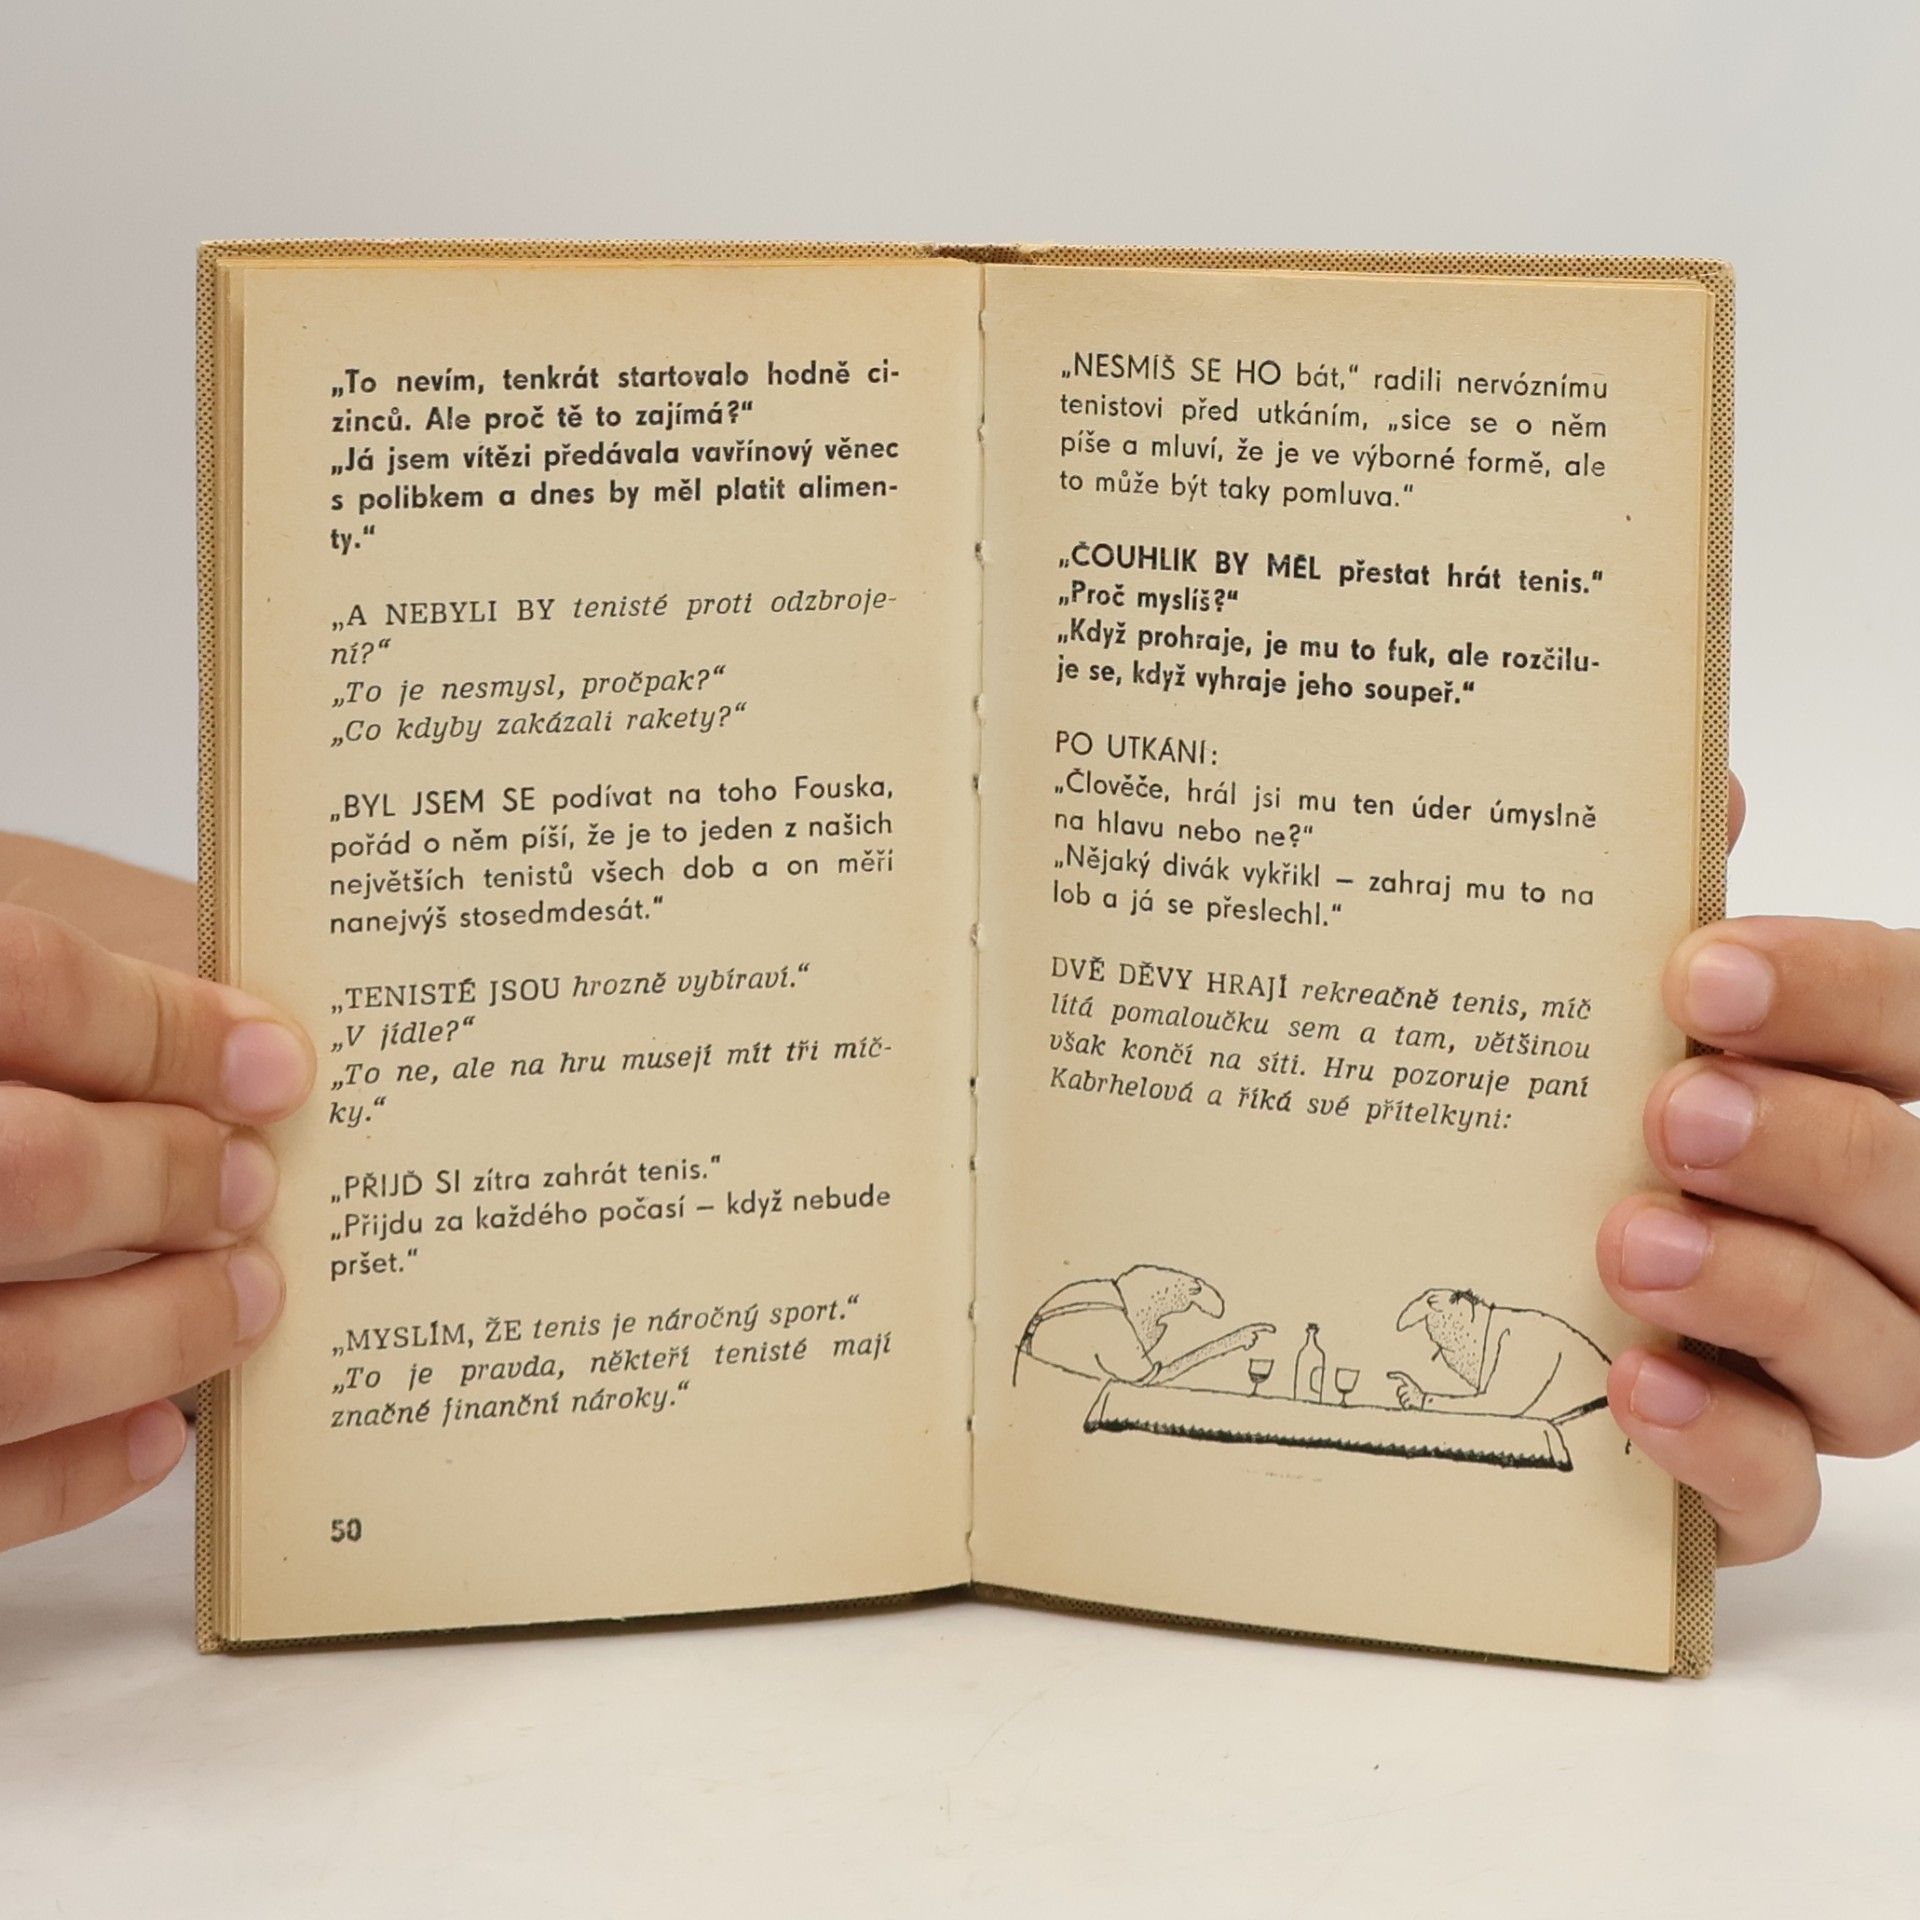 „To nevím, tenkrát startovalo hodně ci-
zinců. Ale proč tě to zajímá?“
„Já jsem vítězi předávala vavřínový věnec
s polibkem a dnes by měl platit alimen-
ty.“
„A NEBYLI BY tenisté proti odzbroje-
ní?“
„To je nesmysl, pročpak?“
„Co kdyby zakázali rakety?“
„BYL JSEM SE podívat na toho Fouska,
pořád o něm píší, že je to jeden z našich
největších tenistů všech dob a on měří
nanejvýš stosedmdesát.“
„TENISTÉ JSOU hrozně vybíraví.“
„V jídle?“
„To ne, ale na hru musejí mít tři míč-
ky.“
„PŘIJĎ SI zítra zahrát tenis.“
„Přijdu za každého počasí – když nebude
pršet.“
„MYSLÍM, ŽE tenis je náročný sport.“
„To je pravda, někteří tenisté mají
značné finanční nároky.“
50
„NESMÍŠ SE HO bát,“ radili nervóznímu
tenistovi před utkáním, „sice se o něm
píše a mluví, že je ve výborné formě, ale
to může být taky pomluva.“
„ČOUHLIK BY MĚL přestat hrát tenis.“
„Proč myslíš?“
„Když prohraje, je mu to fuk, ale rozčilu-
je se, když vyhraje jeho soupeř.“
PO UTKÁNÍ:
„Člověče, hrál jsi mu ten úder úmyslně
na hlavu nebo ne?“
„Nějaký divák vykřikl – zahraj mu to na
lob a já se přeslechl.“
DVĚ DĚVY HRAJÍ rekreačně tenis, míč
lítá pomaloučku sem a tam, většinou
však končí na síti. Hru pozoruje paní
Kabrhelová a říká své přítelkyni: